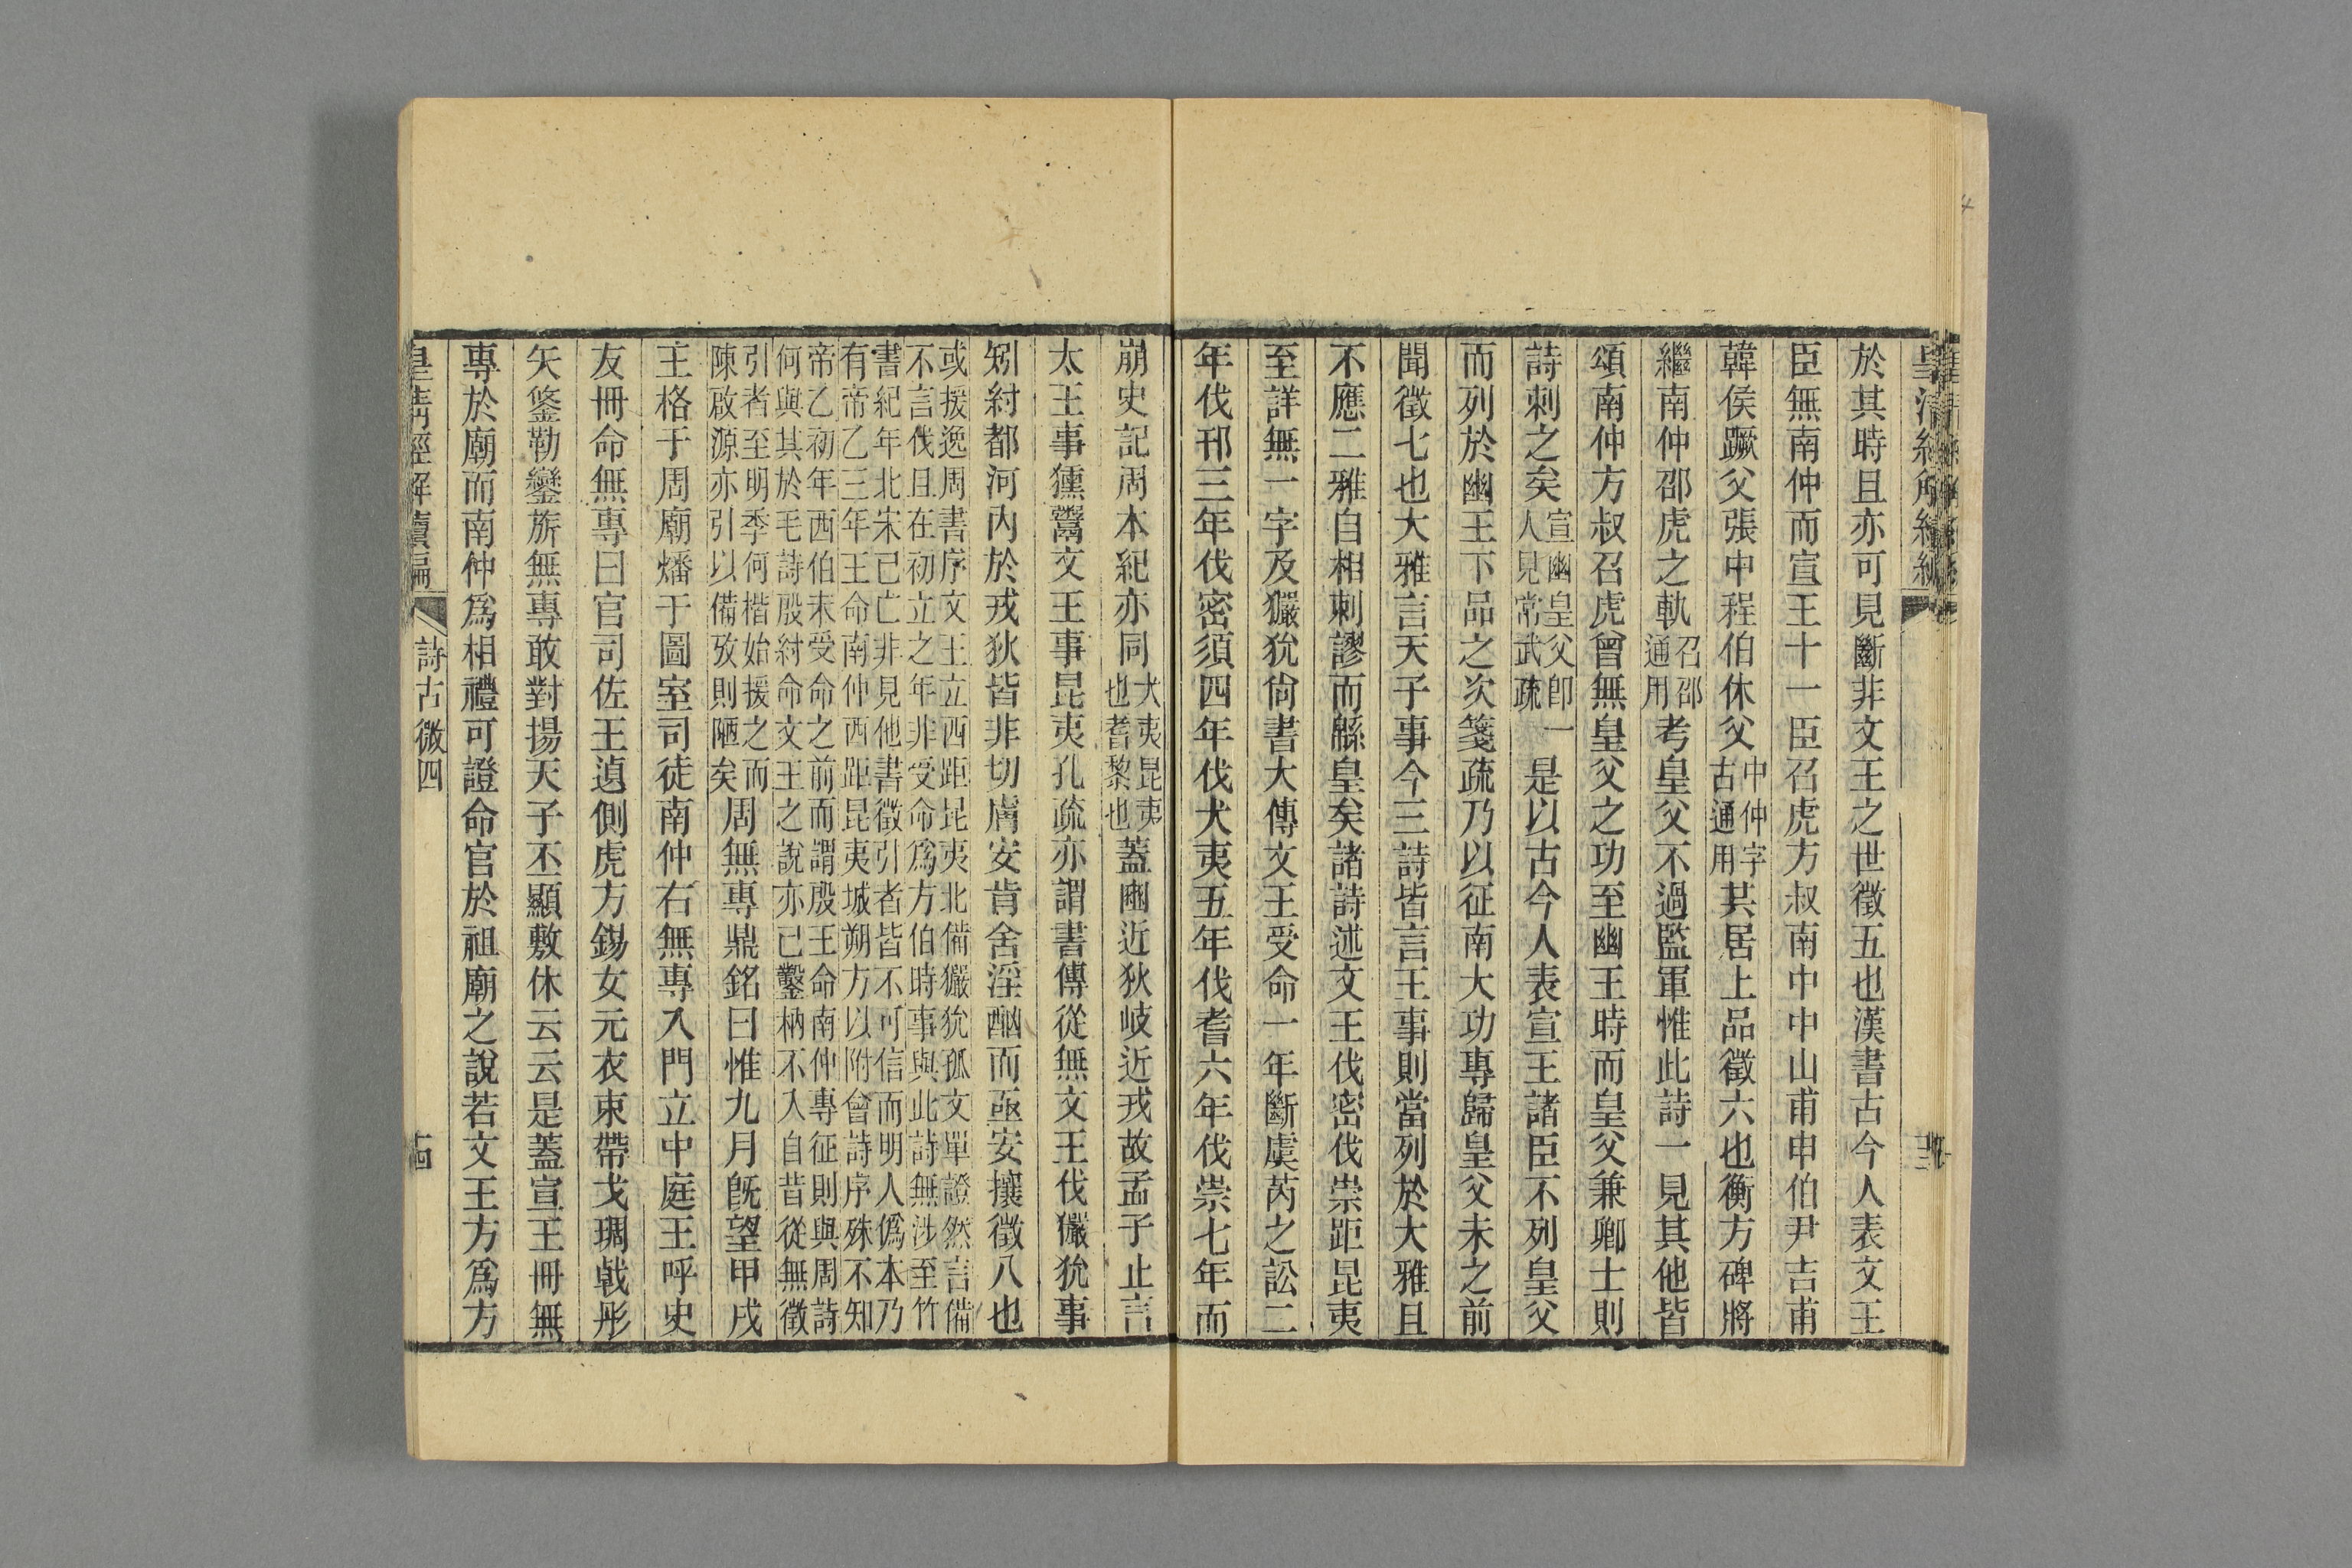 皇清經解續編
於其時且亦可見斷非文王之世徵五也漢書古今人表文王
臣無南仲而宣王十一臣召虎方叔南中中山甫申伯尹吉甫
韓侯蹶父張中程伯休父中仲字古通用其居上品徵六也衡方碑將
繼南仲邵虎之軌召邵通用考皇父不過監軍惟此詩一見其他皆
頌南仲方叔召虎曾無皇父之功至幽王時而皇父兼卿士則
詩刺之矣宣幽皇父卽一人見常武疏是以古今人表宣王諸臣不列皇父
而列於幽王下品之次箋疏乃以征南大功專歸皇父未之前
聞徵七也大雅言天子事今三詩皆言王事則當列於大雅且
不應二雅自相刺謬而緜皇矣諸詩述文王伐密伐崇距昆夷
至詳無一字及玁狁尙書大傳文王受命一年斷虞芮之訟二
年伐邘三年伐密須四年伐犬夷五年伐耆六年伐崇七年而
崩史記周本紀亦同犬夷昆夷也耆黎也蓋豳近狄岐近戎故孟子止言
太王事獯鬻文王事昆夷孔疏亦謂書傳從無文王伐玁狁事
矧紂都河內於戎狄皆非切膚安肯舍淫酗而亟安攘徵八也
或援逸周書序文王立西距昆夷北備玁狁孤文單證然言備
不言伐且在初立之年非受命爲方伯時事與此詩無涉至竹
書紀年北宋已亡非見他書徵引者皆不可信而明人僞本乃
有帝乙三年王命南仲西距昆夷城朔方以附會詩序殊不知
帝乙初年西伯未受命之前而謂殷王命南仲專征則與周詩
何與其於毛詩殷紂命文王之說亦已鑿枘不入自昔從無徵
引者至明季何楷始援之而
陳啟源亦引以備攷則陋矣
周無專鼎銘曰惟九月旣望甲戌
王格于周廟燔于圖室司徒南仲右無專入門立中庭王呼史
友冊命無專曰官司佐王遉側虎方錫女元衣束帶戈琱戟彤
矢鋚勒鑾旂無專敢對揚天子丕顯敷休云云是蓋宣王冊無
專於廟而南仲爲相禮可證命官於祖廟之說若文王方爲方
皇清經解續編
詩古微四
十四